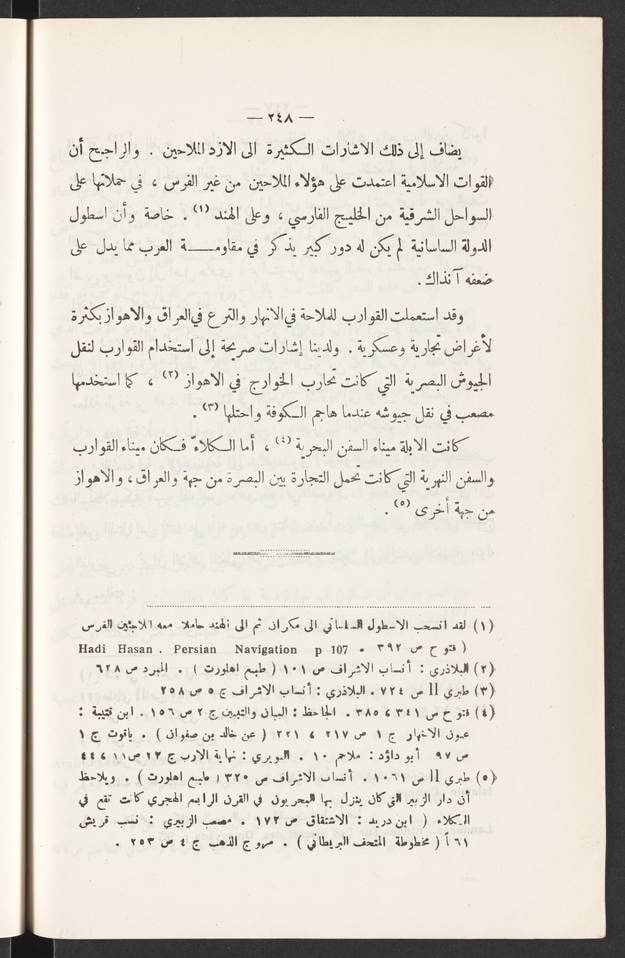 — ٢٤٨ —
يضاف إلى ذلك الاشارات الكثيرة الى الازد الملاحين . والراجح أن
القوات الاسلامية اعتمدت على هؤلاء الملاحين من غير الفرس ، في حملاتها على
السواحل الشرقية من الخليج الفارسي ، وعلى الهند (١) . خاصة وأن اسطول
الدولة الساسانية لم يكن له دور كبير يذكر في مقاومة العرب مما يدل على
ضعفه آنذاك .
وقد استعملت القوارب للملاحة في الانهار والترع في العراق والاهواز بكثرة
لأغراض تجارية وعسكرية . ولدينا إشارات صريحة إلى استخدام القوارب لنقل
الجيوش البصرية التي كانت تحارب الخوارج في الاهواز (٢) ، كما استخدمها
مصعب في نقل جيوشه عندما هاجم الكوفة واحتلها (٣) .
كانت الابلة ميناء السفن البحرية (٤) ، أما الكلاّء فكان ميناء القوارب
والسفن النهرية التي كانت تحمل التجارة بين البصرة من جهة والعراق ، والاهواز
من جهة أخرى (٥) .
(١) لقد انسحب الاسطول الساساني الى مكران ثم الى الهند حاملا معه اللاجئين الفرس
( فتوح ص ٣٩٢ . Hadi Hasan . Persian Navigation p 107
(٢) البلاذري : أنساب الاشراف ص ١٠١ ( طبع اهلورت ) . المبرد ص ٦٢٨
(٣) طبري II ص ٧٢٤ . البلاذري : أنساب الاشراف ج ٥ ص ٢٥٨
(٤) فتوح ص ٣٤١ ، ٣٨٥ . الجاحظ : البيان والتبيين ج ٢ ص ١٥٦ . ابن قتيبة :
عيون الاخبار ج ١ ص ٢١٧ ، ٢٢١ ( عن خالد بن صفوان ) . ياقوت ج ١
ص ٩٧ أبو داؤد : ملاحم ١٠ . النويري : نهاية الارب ج ١٢ ص ١١ ، ٤٤
(٥) طبري II ص ١٠٦١ . أنساب الاشراف ص ٣٢٥ ( طبع اهلورت ) . ويلاحظ
أن دار الزبير التي كان ينزل بها البحريون في القرن الرابع الهجري كانت تقع في
الكلاء ( ابن دريد : الاشتقاق ص ١٧٢ . مصعب الزبيري : نسب قريش
٦١ أ ( مخطوطة المتحف البريطاني ) . مروج الذهب ج ٤ ص ٢٥٣ .